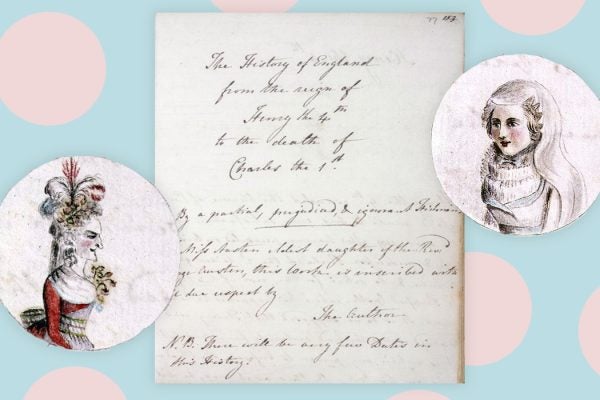 The History of England
from the reign of
Henry the 4th
to the death of
Charles the 1st
By a partial, prejudiced, & ignorant Historian
Miss Austen eldest daughter of the Revd
ge Austen, this Work is inscribed with
due respect by
The Author
N.B. There will be very few Dates in
this History.